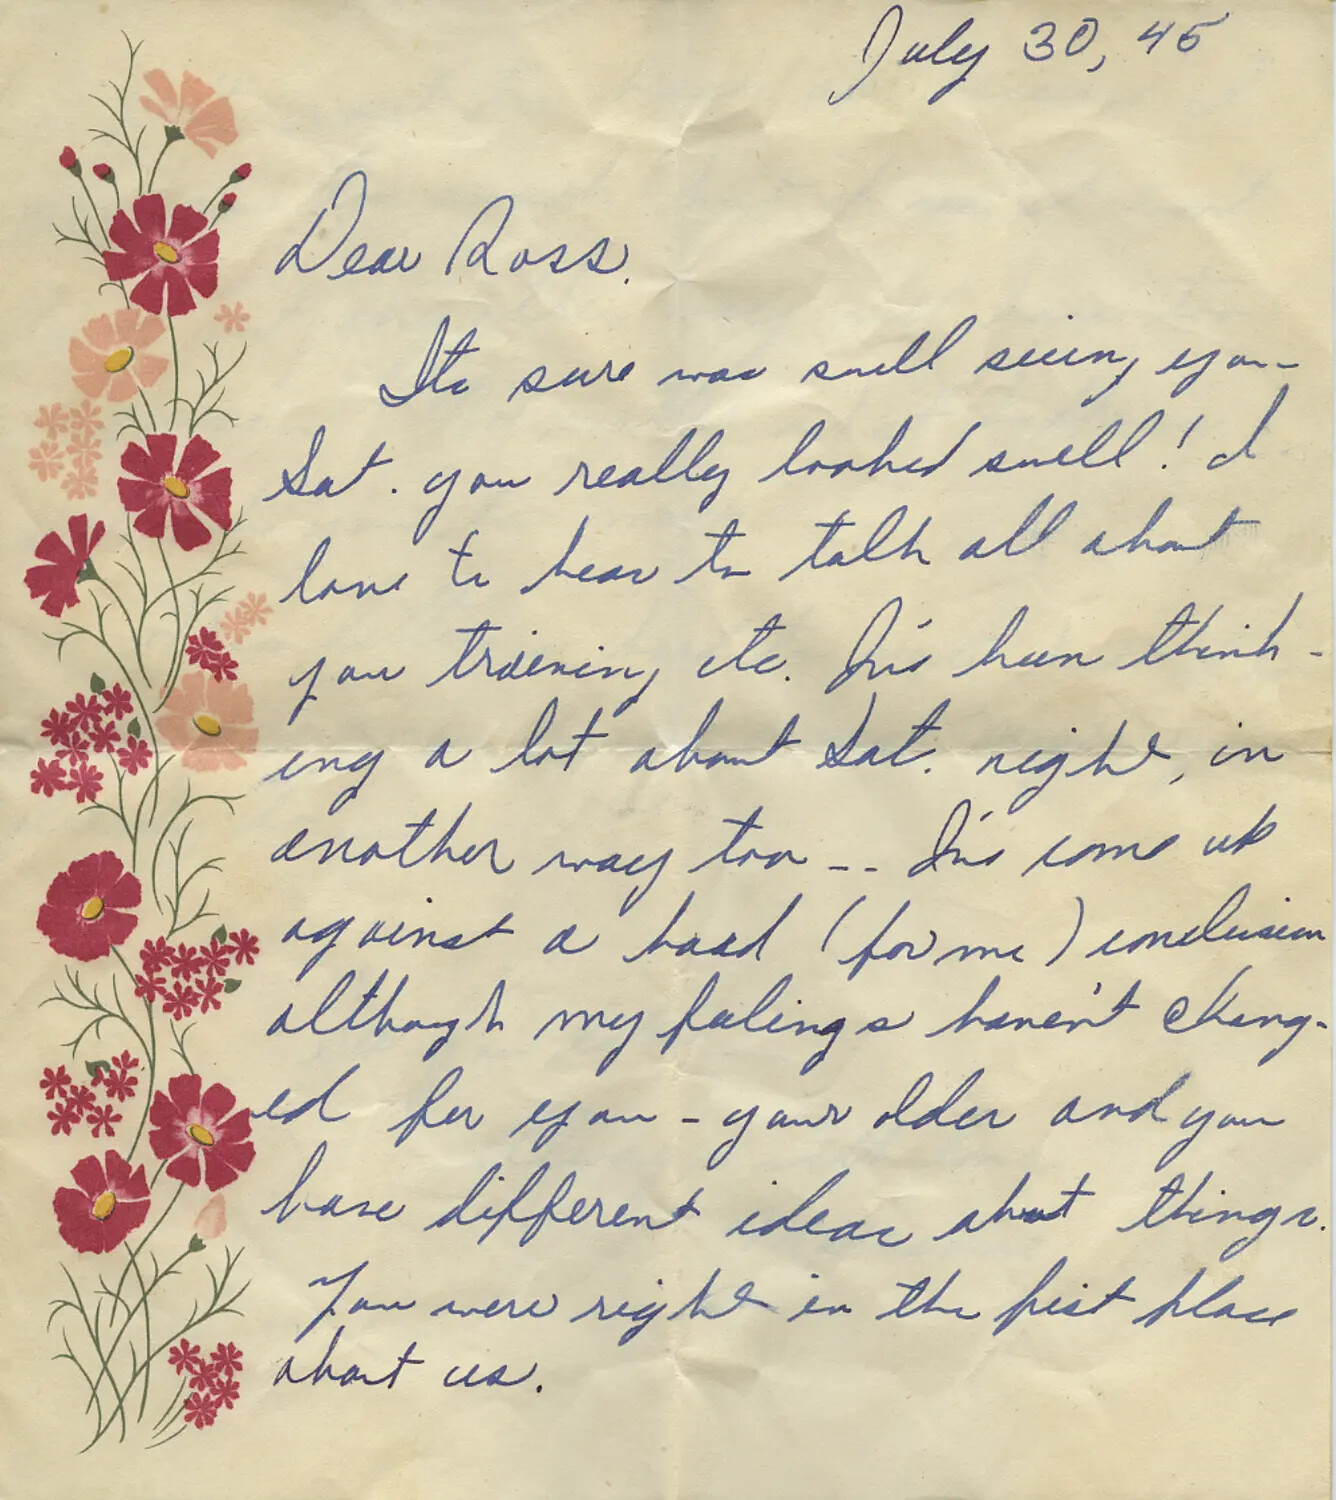 July 30, 45
Dear Ross.
Its sure was swell seeing you
Sat. you really looked swell! I
love to hear to talk all about
you training etc. I've been think-
ing a lot about Sat. night, in
another way too -- I've come up
against a hard (for me) conclusion
although my feelings haven't chang-
ed for you - your older and you
have different ideas about things.
You were right in the first place
about us.